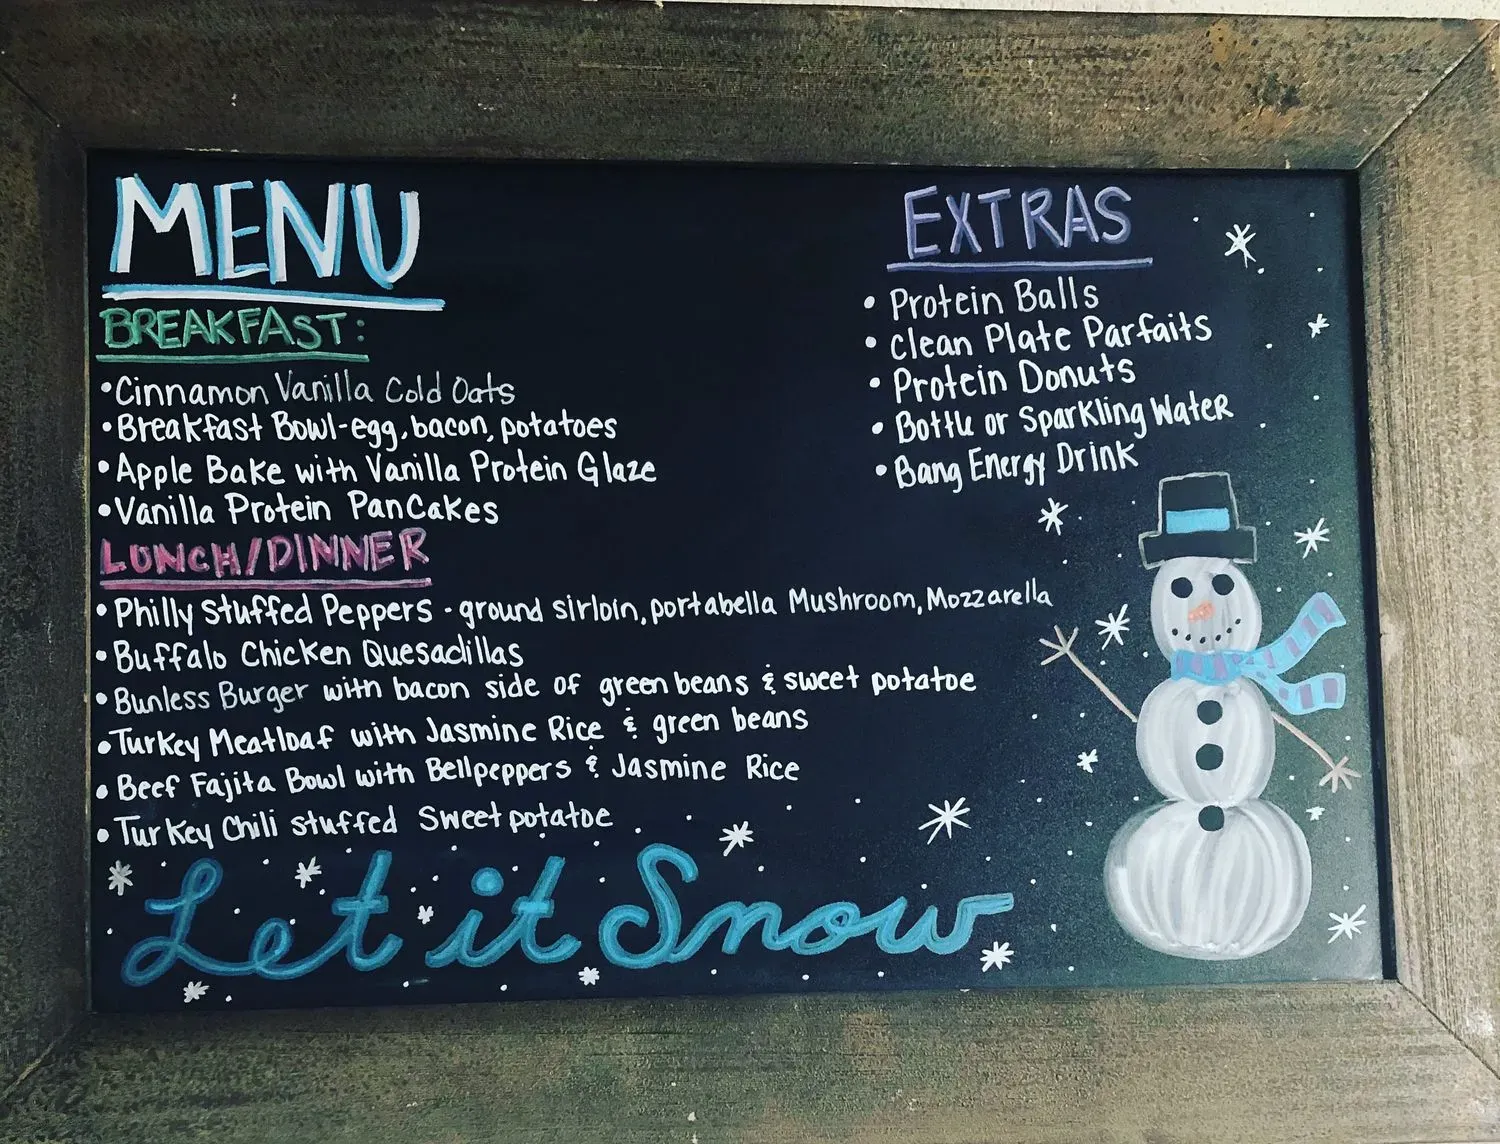 MENU
BREAKFAST:
• Cinnamon Vanilla Cold Oats
• Breakfast Bowl-egg, bacon, potatoes
• Apple Bake with Vanilla Protein Glaze
• Vanilla Protein PanCakes
LUNCH/DINNER
• Philly Stuffed Peppers - ground sirloin, portabella Mushroom, Mozzarella
• Buffalo Chicken Quesadillas
• Bunless Burger with bacon side of green beans & sweet potatoe
• Turkey Meatloaf with Jasmine Rice & green beans
• Beef Fajita Bowl with Bellpeppers & Jasmine Rice
• Turkey Chili stuffed Sweet potatoe
Let it Snow
EXTRAS
• Protein Balls
• Clean Plate Parfaits
• Protein Donuts
• Bottle or Sparkling Water
• Bang Energy Drink